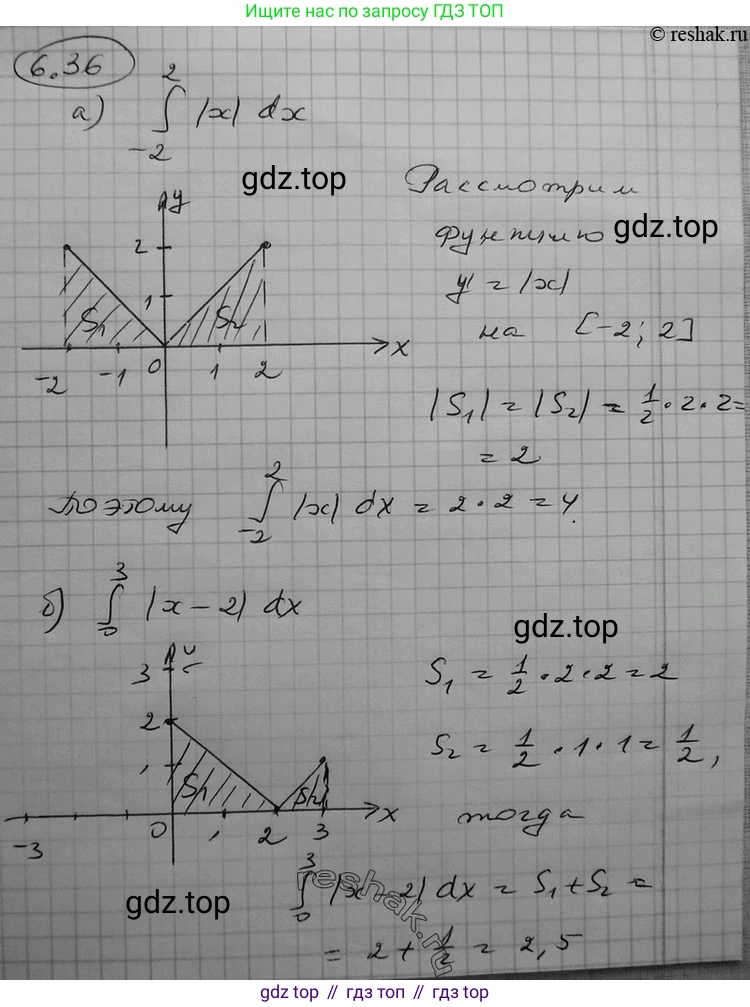 Ищите нас по запросу ГДЗ ТОП
© reshak.ru
6.36
а) ∫₋₂² |x| dx
gdz.top
Рассмотрим
функцию
gdz.top
y = |x|
на [-2; 2]
y
2
1
S₁
S₂
-2 -1 0 1 2 x
|S₁| = |S₂| = 1/2 · 2 · 2 =
= 2
Поэтому ∫₋₂² |x| dx = 2 · 2 = 4.
б) ∫₀³ |x - 2| dx
gdz.top
y
3
2
1
S₁
S₂
-3 0 1 2 3 x
S₁ = 1/2 · 2 · 2 = 2
S₂ = 1/2 · 1 · 1 = 1/2,
тогда
∫₀³ |x - 2| dx = S₁ + S₂ =
gdz.top
reshak.ru
= 2 + 1/2 = 2,5
gdz top // гдз топ // gdz top // гдз top